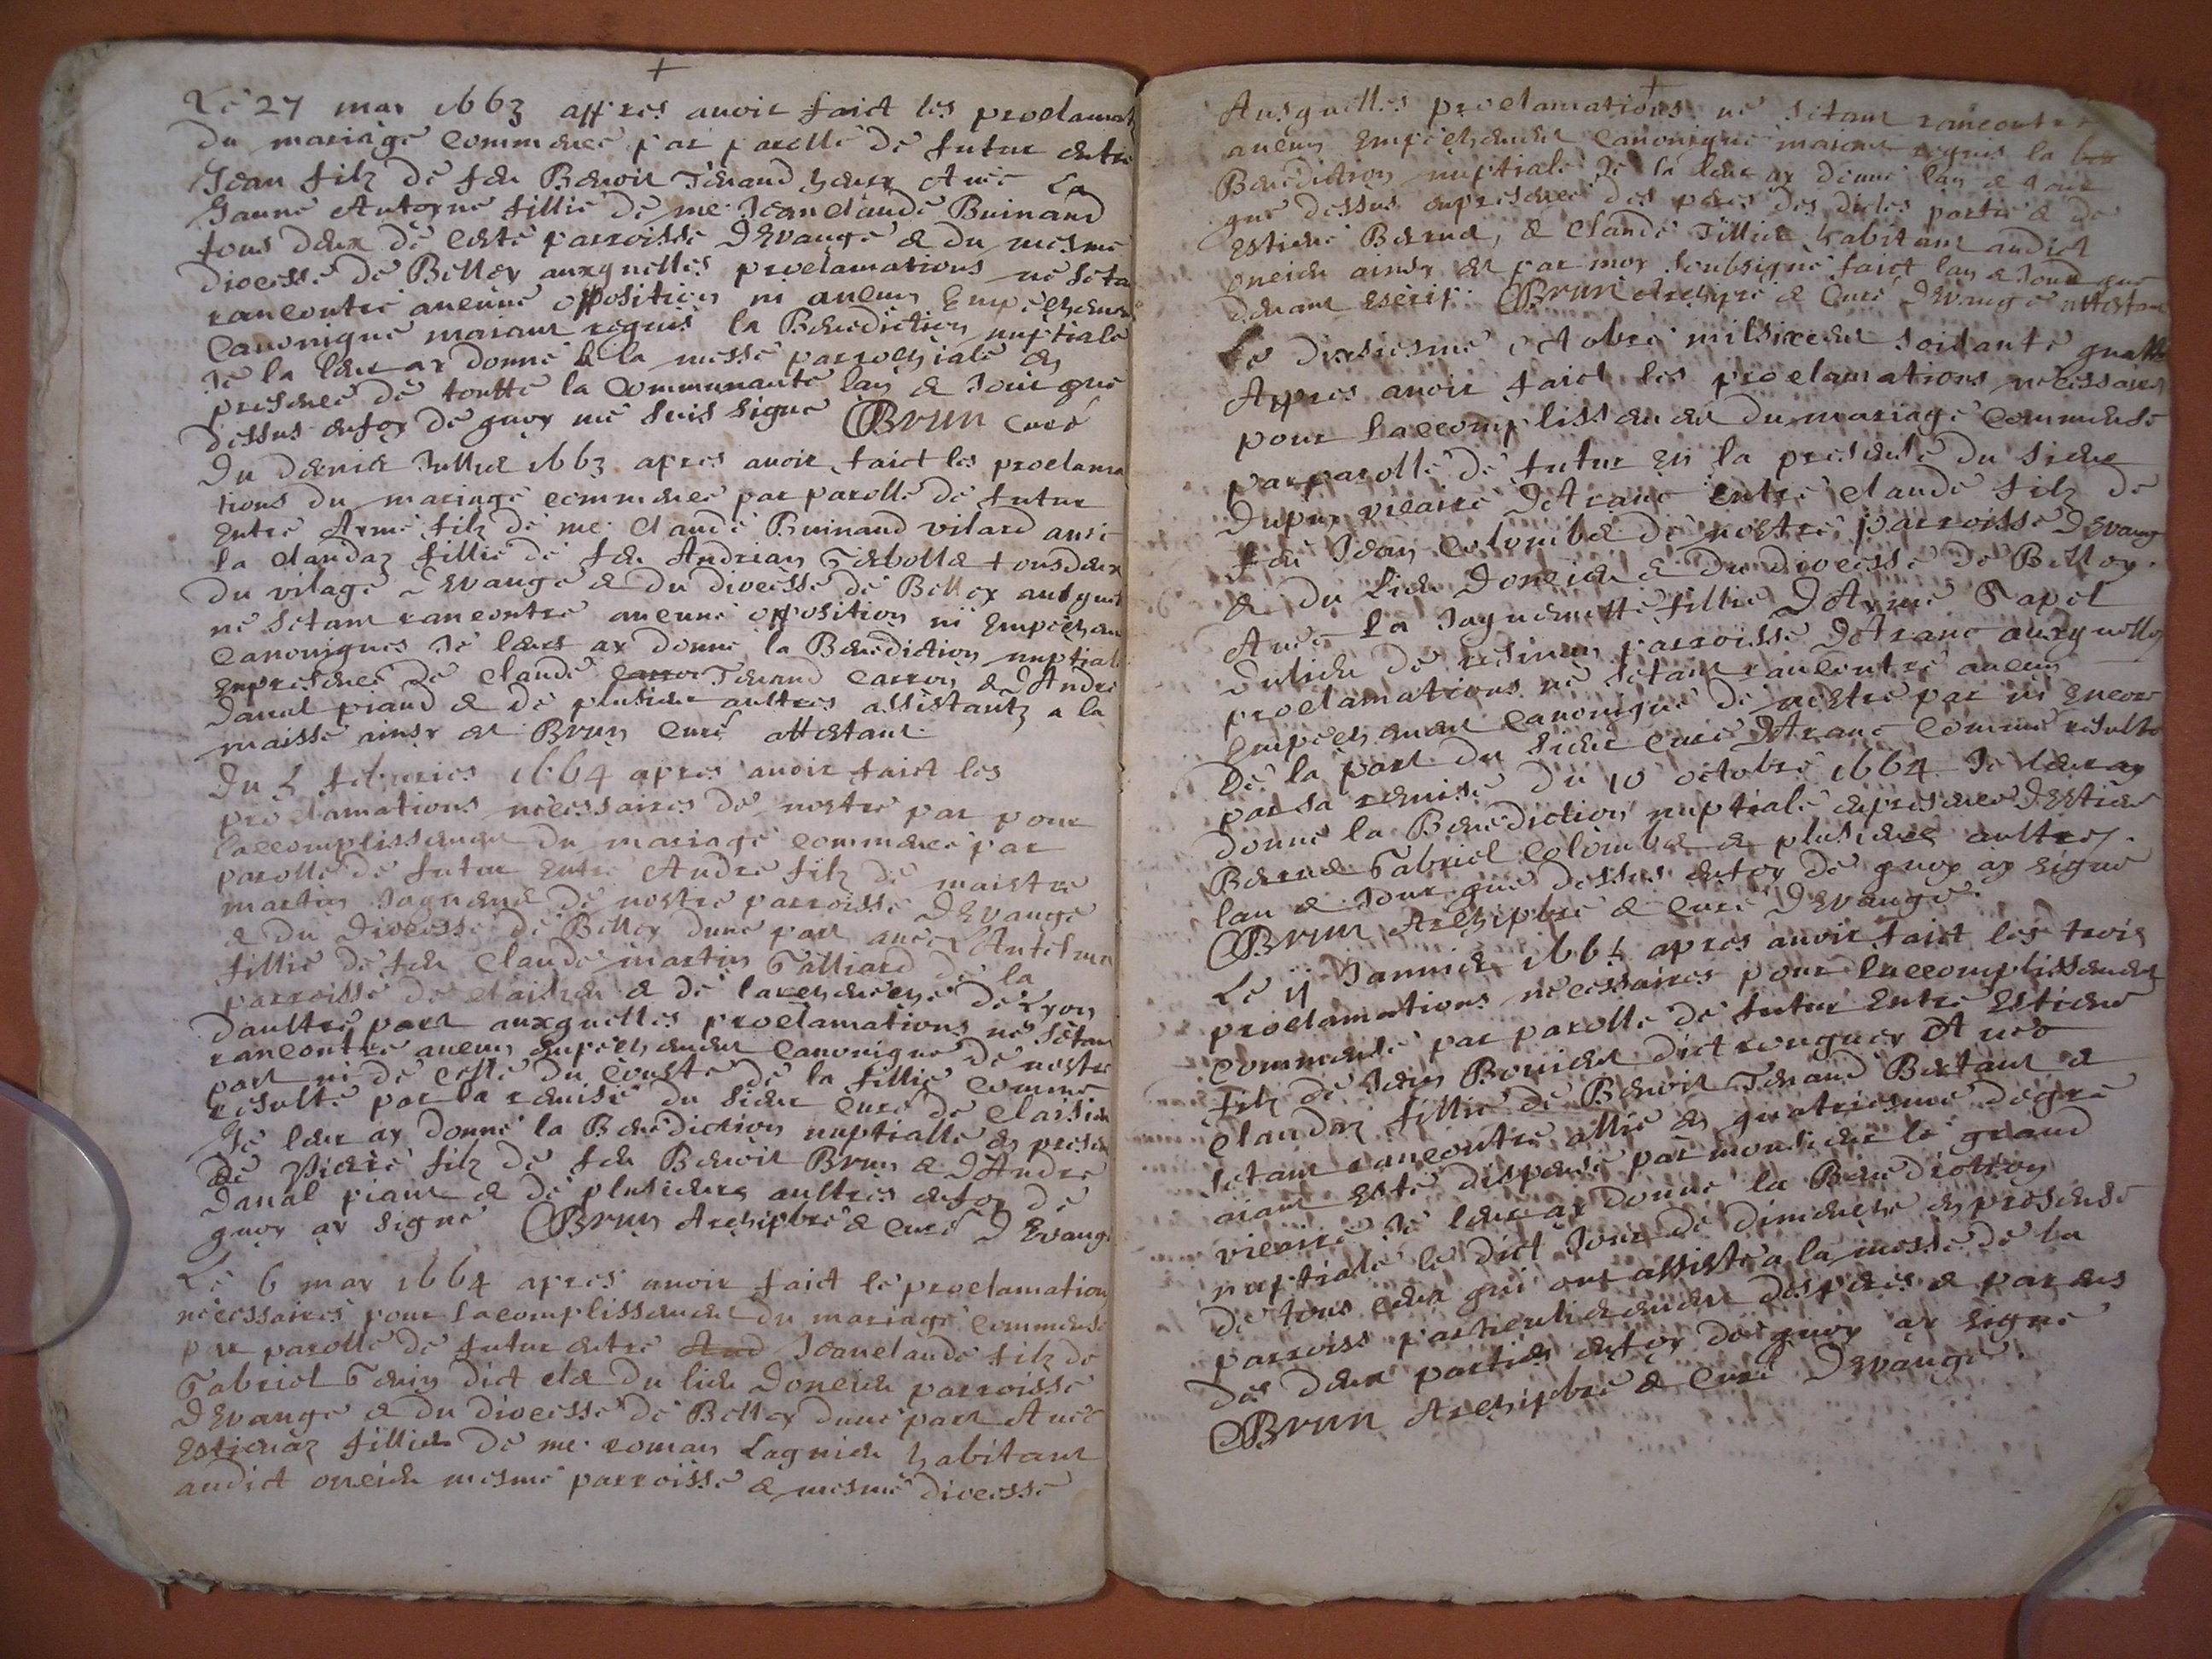 Le 27 may 1663 appres avoir faict les proclamat
du mariage commencé par parolle de futur entre
Jean filz de feu Benoit Tenand heux Avec La
Janne Antoyne fillie de me. Jean claude Buinand
tous deux de ceste parroisse d'Evange & du mesme
diocesse de Belley auxquelles proclamations ne seta
rancontre aucune opposition ni aucun Empechem
Canonique maiant requis la Benediction nuptiale
Je la leur ay donné a la messe parrochiale en
presence de toutte la Communauté lan & Jour que
dessus enfoy de quoy me suis signé Brun curé
Du dernier Jullie 1663 apres avoir faict les proclama
tions du mariage commencé par parolle de futur
Entre Ayme filz de me. Claude Buinand vilard avec
la claudaz fillie de feu Andrian Gebollet tousdeux
du vilage d'Evange & du diocesse de Belley ausque
ne setant rancontre aucune opposition ni Empechem
Canoniques Je leurs ay donné la Benediction nuptial
Enpresence de Claude Tenand Carron & d'Andre
Danal piand & de plusieur aultres assistantz a la
maisse ainsy est Brun Curé attestant.
Du 5 febvrier 1664 apres avoir faict les
proclamations necessaires de nostre par pour
laccomplissement du mariage commencé par
parolle de futur Entre Andre filz de maistre
martin Jaquenet de nostre parroisse d'Evange
& du Diocesse de Belley dune part avec L'Antelma
fillie de feu Claude martin Galliard de la
parroisse de claisieu & de larcheveche de Lyon
daultre part auxquelles proclamations ne setant
rancontre aucun Enpechement canonique de nostre
part ni de celle du Couste de la fillie comme
resulte par la remise du sieur curé de Classieu
Je leur ay donné la Benediction nuptialle en presen
de Pierre filz de feu Benoit Brun & d'Andre
Danal piant & de plusieurs aultres enfoy de
quoy ay signé Brun Archiptre & Curé d'Evange
Le 6 may 1664 apres avoir faict le proclamation
necessaires pour lacomplissement du mariage commensé
par parolle de futur entre And Jeanclaude filz de
Gabriel Genin dict clet du lieu Doncieu parroisse
d'Evange & du diocesse de Belley dune part Avec
Estienaz fillie de me. roman Lagnieu habitant
audict oncieu mesme parroisse & mesme diocesse
Ausquelles proclamations ne setant rancontre
aucun Empechement Canonique maiant requis la ben
Benediction nuptiale Je la leur ay donné lan & Jour
que dessus enpresence des peres des dictes partie & de
Estiene Bernet, & Claude Tillier habitant audict
oncieu ainsy est par moy soubsigné faict lan & Jour que
devant escrit. Brun Archiptre & Curé d'Evange attestant
Le dixiesme octobre milsixcent soixante quatt
Appres avoir faict les proclamations necessaires
pour laccomplissement du mariage commensé
parparolle de futur En la presense du sieur
Dupuy vicaire d'Aranc Entre claude filz de
feu Jean colombet de nostre parroisse d'Evang
& du Lieu Doncieu & du diocesse de Belley.
Avec La Jaquemette fillie d'Ayme Gapel
Dulieu de resinen parroisse d'Aranc auxquelles
proclamations ne setant rancontré aucun
Empechement Canonique de nostre par ni Encore
De la part du sieur curé d'Aranc comme resulte
par sa remise du 10 octobre 1664 Je leur ay
donné la Benediction nuptiale enpresence d'Estiene
Bernet Gabriel Colombet & plusieurs aultres.
lan & Jour que dessus enfoy de quoy ay signé
Brun Archiptre & Curé d'Evange.
Le 11 Janvier 1665 apres avoir faict les trois
proclamations necessaires pour laccomplissement
Commensé par parolle de futur Entre Estiene
filz de Jean Bouvier dict Avec
Claudaz fillie de Benoit Tenand Bertant &
setant rancontre allié en quatriesme degré
aiant Esté dispensé par monsieur le grand
vicaire Je leur ay donné la Benediction
nuptiale le dict Jour de dimenche en presense
de tous ceux qui ont assisté a la messe de la
parroiss particulierement des peres & parens
des deux parties enfoy de quoy ay signé
Brun Archiptre & Curé d'Evange.